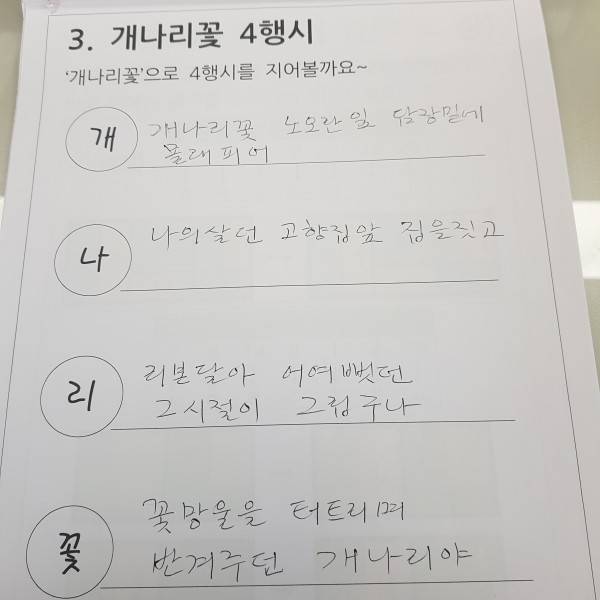 3. 개나리꽃 4행시
'개나리꽃'으로 4행시를 지어볼까요~
개
개나리꽃 노오란잎 담장밑에
몰래피어
나
나의살던 고향집앞 집을짓고
리
리본달아 어여뻤던
그시절이 그립구나
꽃
꽃망울을 터트리며
반겨주던 개나리야